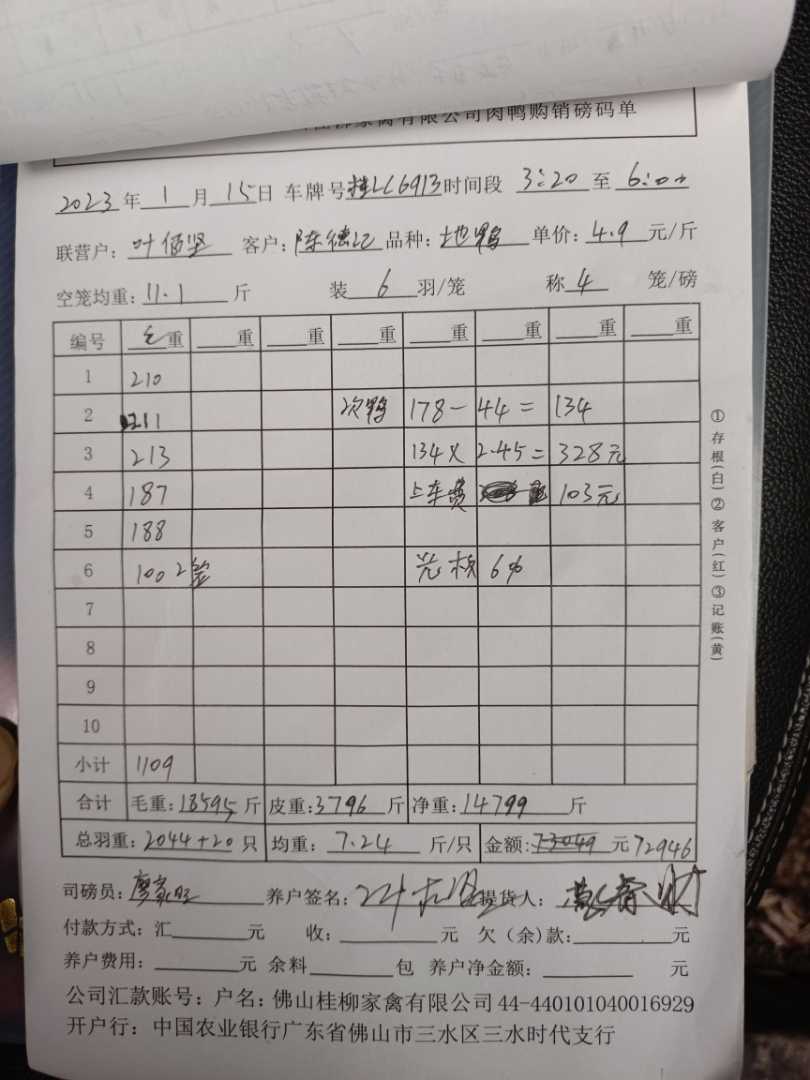 柳家禽有限公司肉鸭购销磅码单
2023年1月15日 车牌号桂LC6913时间段 3:20至6:00
联营户:叶佰坚 客户:陈德记 品种:土鸭 单价:4.9元/斤
空笼均重:11.1斤 装6羽/笼 称4笼/磅
编号 毛重 重 重 重 重 重 重 重
1 210
2 211 次鸭 178-44=134
3 213 134×2.45=328元
4 187 上车费 103元
5 188
6 100 2笼 6%
7
8
9
10
小计 1109
合计 毛重:18595斤 皮重:3796斤 净重:14799斤
总羽重:2044+20只 均重:7.24斤/只 金额:73049元72946
司磅员: 养户签名: 提货人:
付款方式:汇 元 收: 元 欠(余)款: 元
养户费用: 元 余料 包 养户净金额: 元
公司汇款账号:户名:佛山桂柳家禽有限公司 44-440101040016929
开户行:中国农业银行广东省佛山市三水区三水时代支行
①存根(白)②客户(红)③记账(黄)